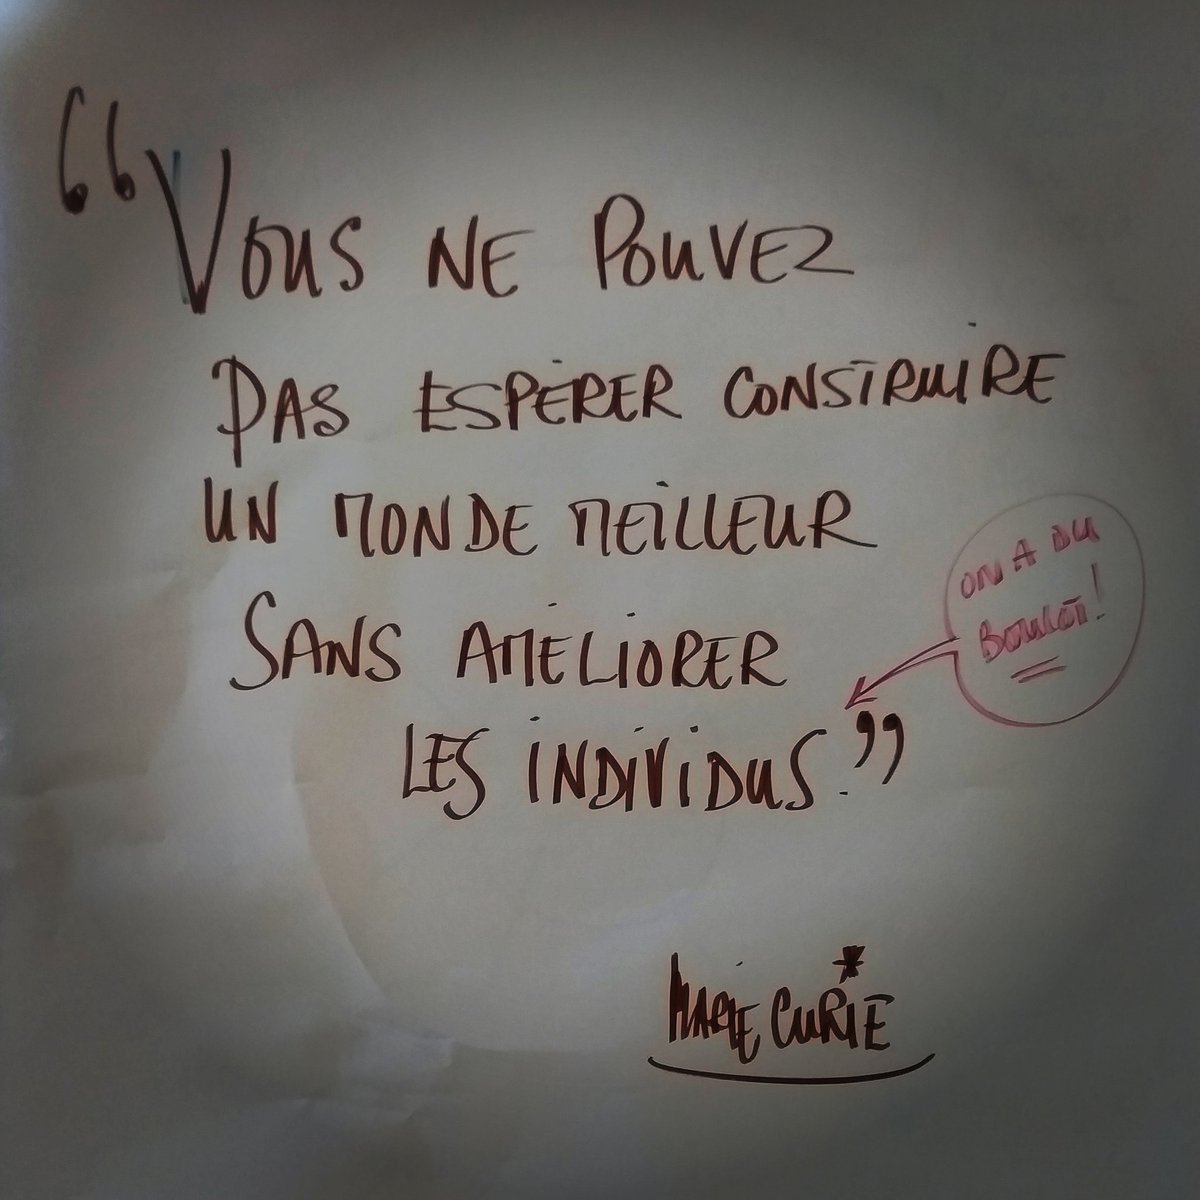 “VOUS NE POUVEZ
PAS ESPÉRER CONSTRUIRE
UN MONDE MEILLEUR
SANS AMÉLIORER
LES INDIVIDUS.”
ON A DU
BOULOT!
MARIE CURIE